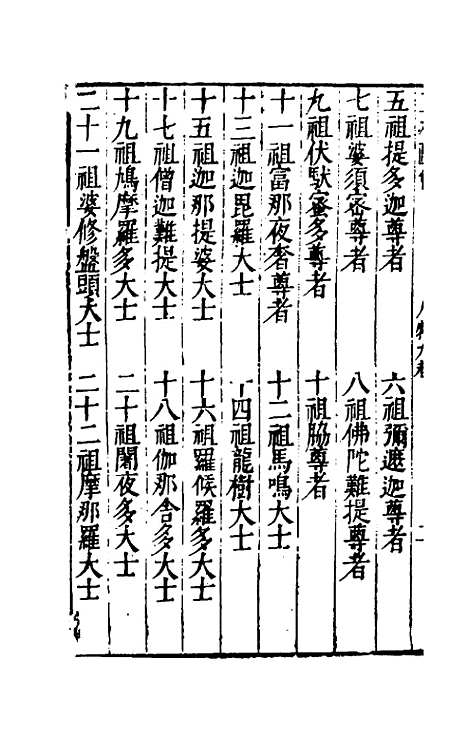 五祖提多迦尊者　六祖彌遮迦尊者
七祖婆須密尊者　八祖佛陀難提尊者
九祖伏馱蜜多尊者　十祖脇尊者
十一祖富那夜奢尊者　十二祖馬鳴大士
十三祖迦毘羅大士　十四祖龍樹大士
十五祖迦那提婆大士　十六祖羅㬋羅多大士
十七祖僧迦難提大士　十八祖伽那舍多大士
十九祖鳩摩羅多大士　二十祖闍夜多大士
二十一祖婆修盤頭大士　二十二祖摩那羅大士